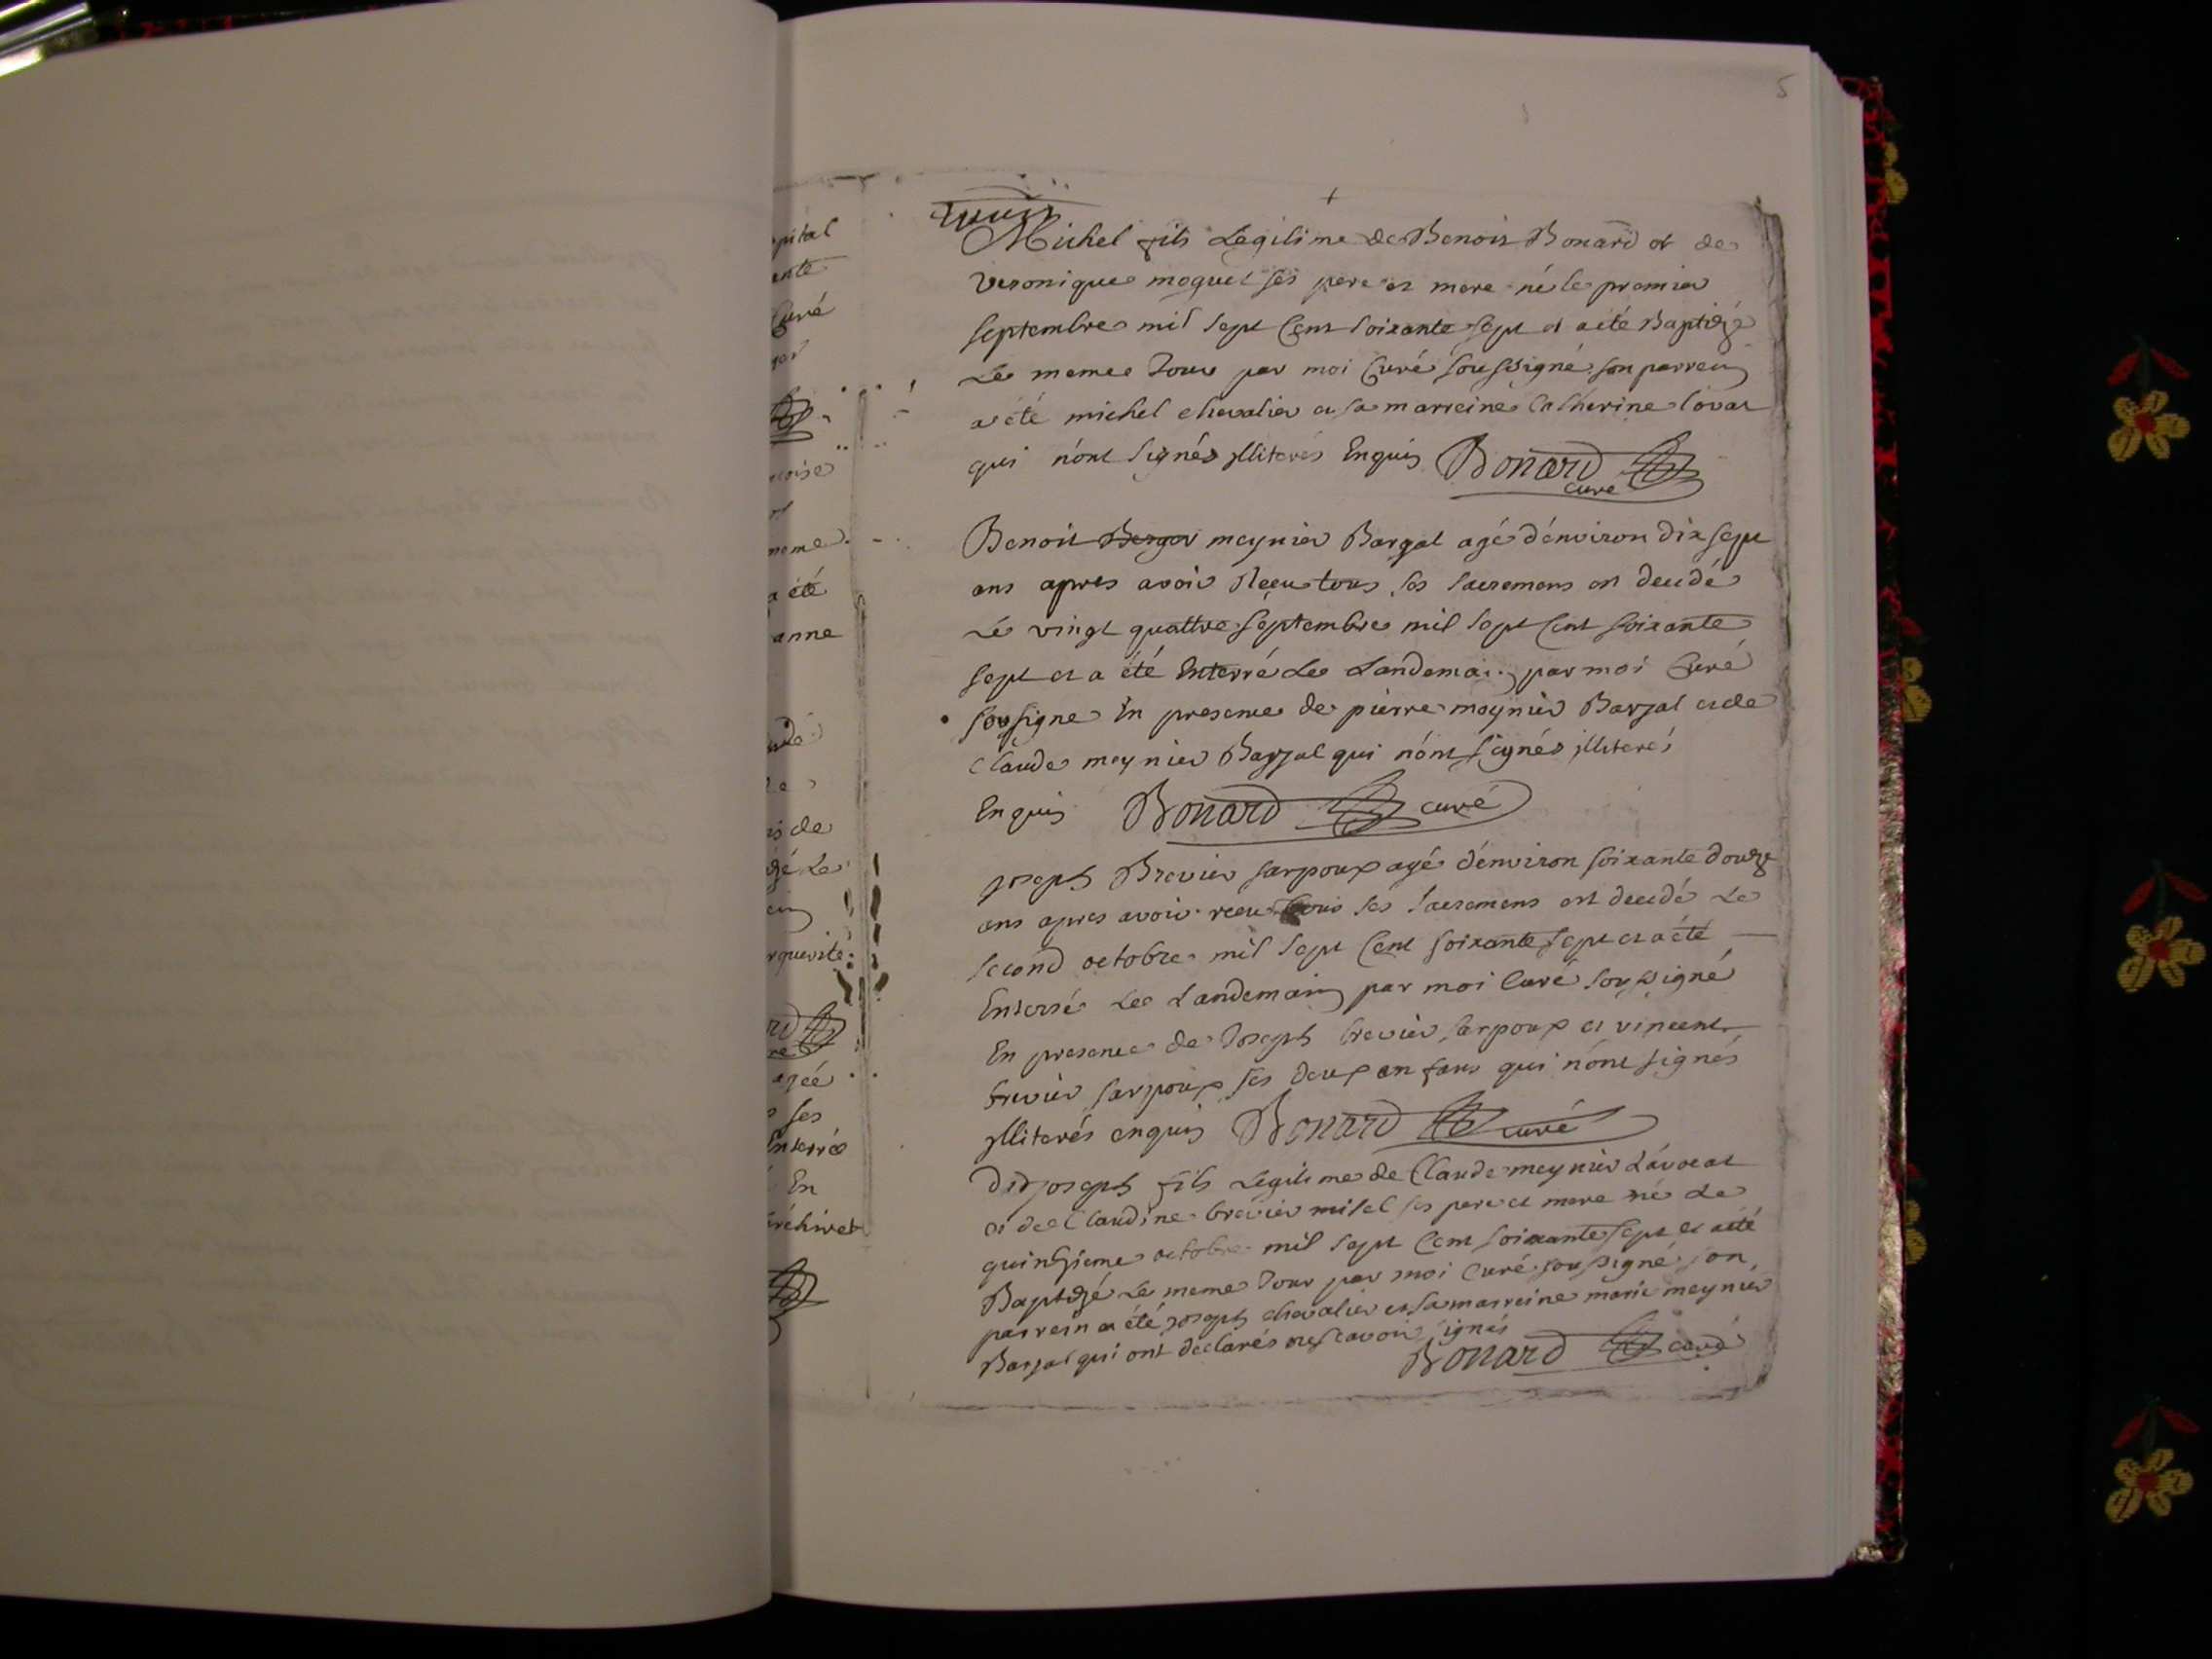 5
Michel fils Legitime de Benoit Bonard et de
Veronique moquet ses pere et mere né le premier
septembre mil sept Cent soixante sept et a été Baptizé
Le meme Jour par moi Curé soussigné son parrein
a été michel chevalier et sa marreine Catherine
qui n'ont signés jlliterés Enquis Bonard
curé
Benoit Berger meynier Barjal agé d'environ dix sept
ans apres avoir Reçu tous ses sacremens est decedé
Le vingt quattre septembre mil sept Cent soixante
sept et a été Enterré Le Landemain par moi Curé
sousigne En presence de pierre meynier Barjal et de
Claude meynier Barjal qui n'ont signés jlliterés
Enquis Bonard curé
joseph Brevier sarpoux agé d'environ soixante douze
ans apres avoir recu tous ses sacremens est decedé Le
second octobre mil sept Cent soixante sept et a été
Enterré Le Landemain par moi Curé sousigné
En presence de Joseph brevier sarpoux et vincent
brevier sarpoux ses deux enfans qui n'ont signés
jlliterés enquis Bonard curé
joseph fils Legitime de Claude meynier L'avocat
et de Claudine brevier misel ses pere et mere né Le
quinzieme octobre mil sept Cent soixante sept et a été
Baptizé Le meme Jour par moi Curé sousigné son
parrein a été joseph chevalier et sa marreine marie meynier
Barjal qui ont declarés ne scavoir signés
Bonard curé
pital
ante
Curé
coise
meme
a été
anne
is de
zé Le
agée
ses
Enterré
En